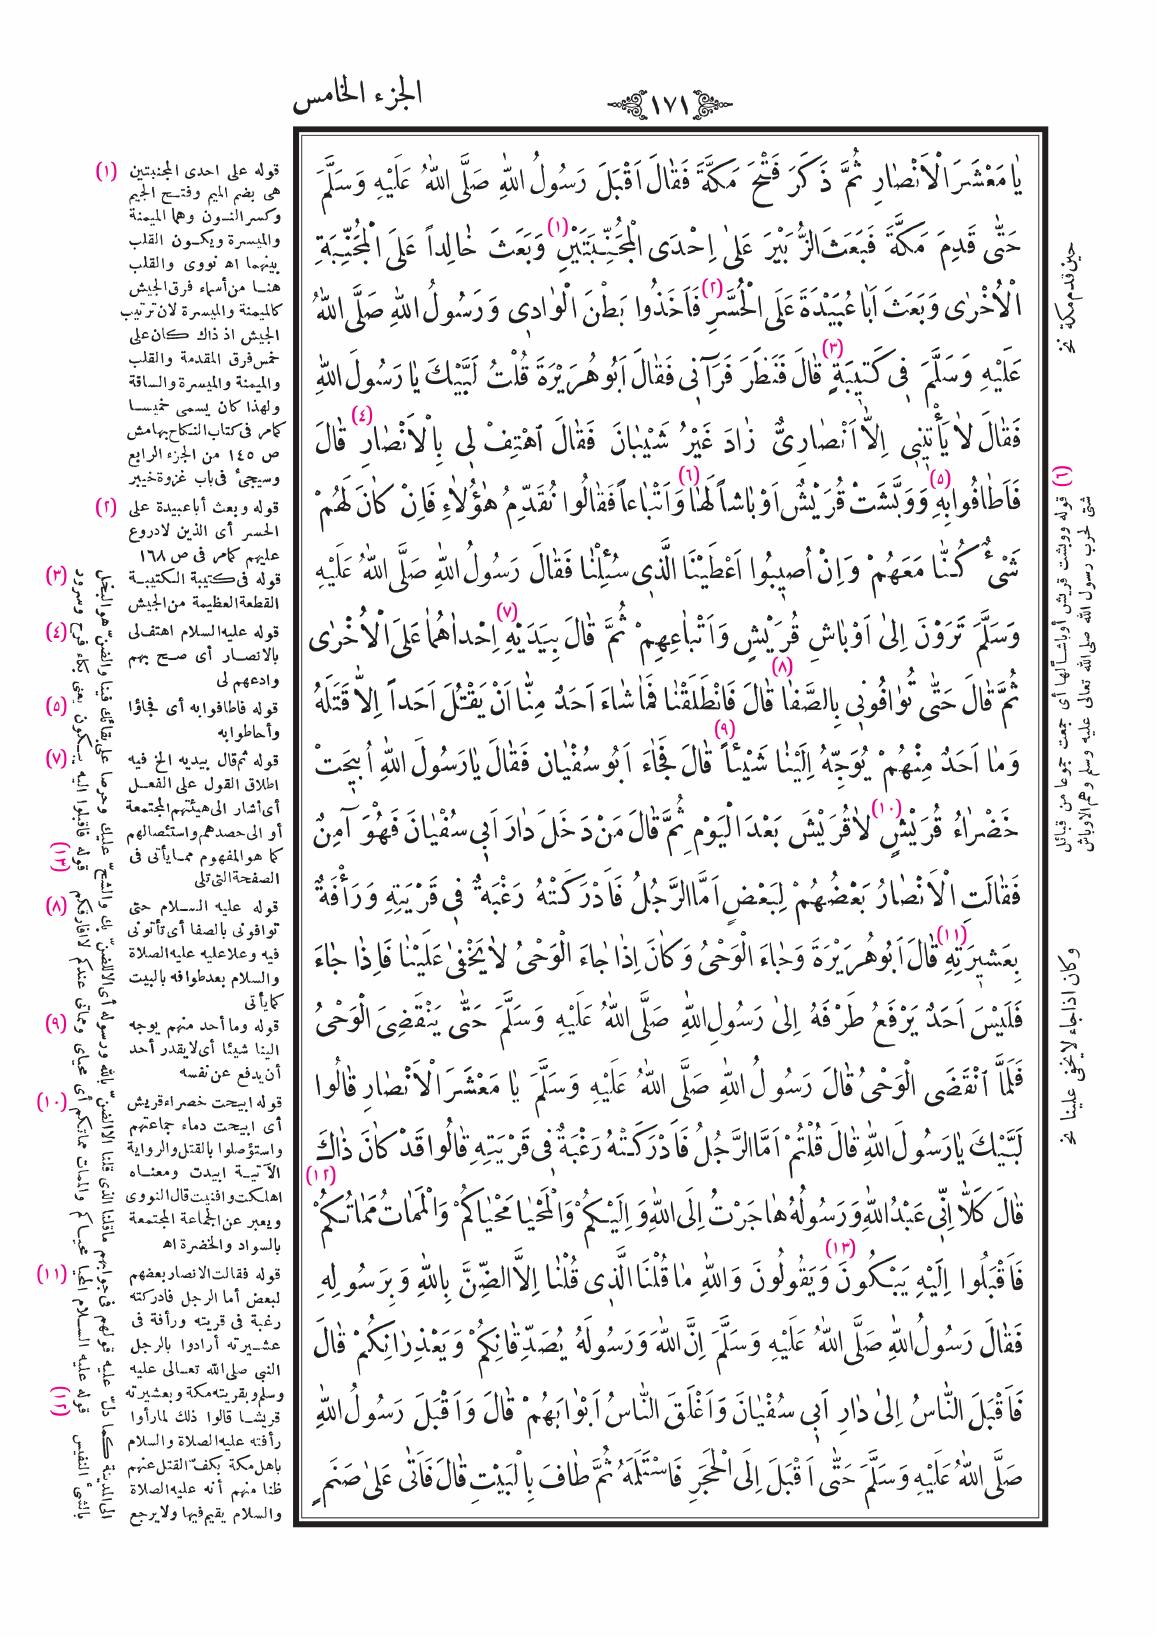 الجزء الخامس
﴿١٧١﴾
يَا مَعْشَرَ الْاَنْصَارِ ثُمَّ ذَكَرَ فَتْحَ مَكَّةَ فَقَالَ اَقْبَلَ رَسُولُ اللّٰهِ صَلَّى اللّٰهُ عَلَيْهِ وَسَلَّمَ
حَتَّى قَدِمَ مَكَّةَ فَبَعَثَ الزُّبَيْرَ عَلىٰ اِحْدَى الْمُجَنِّبَتَيْنِ (١) وَبَعَثَ خَالِداً عَلَى الْمُجَنِّبَةِ
الْاُخْرٰى وَبَعَثَ اَبَا عُبَيْدَةَ عَلَى الْحُسَّرِ (٢) فَاَخَذُوا بَطْنَ الْوَادِى وَرَسُولُ اللّٰهِ صَلَّى اللّٰهُ
عَلَيْهِ وَسَلَّمَ فِى كَتِيبَةٍ (٣) قَالَ فَنَظَرَ فَرَآنِى فَقَالَ اَبُو هُرَيْرَةَ قُلْتُ لَبَّيْكَ يَا رَسُولَ اللّٰهِ
فَقَالَ لَا يَأْتِينِى اِلَّا اَنْصَارِىٌّ زَادَ غَيْرُ شَيْبَانَ فَقَالَ اهْتِفْ لِى بِالْاَنْصَارِ (٤) قَالَ
فَاَطَافُوا بِهِ (٥) وَوَبَّشَتْ قُرَيْشٌ اَوْبَاشاً لَهَا (٦) وَاَتْبَاعاً فَقَالُوا نُقَدِّمُ هٰؤُلَاءِ فَاِنْ كَانَ لَهُمْ
شَىْءٌ كُنَّا مَعَهُمْ وَاِنْ اُصِيبُوا اَعْطَيْنَا الَّذِى سُئِلْنَا فَقَالَ رَسُولُ اللّٰهِ صَلَّى اللّٰهُ عَلَيْهِ
وَسَلَّمَ تَرَوْنَ اِلىٰ اَوْبَاشِ قُرَيْشٍ وَاَتْبَاعِهِمْ ثُمَّ قَالَ بِيَدَيْهِ (٧) اِحْدَاهُمَا عَلَى الْاُخْرٰى
ثُمَّ قَالَ حَتَّى تُوَافُونِى بِالصَّفَا (٨) قَالَ فَانْطَلَقْنَا فَمَا شَاءَ اَحَدٌ مِنَّا اَنْ يَقْتُلَ اَحَداً اِلَّا قَتَلَهُ
وَمَا اَحَدٌ مِنْهُمْ يُوَجِّهُ اِلَيْنَا شَيْئاً (٩) قَالَ فَجَاءَ اَبُو سُفْيَانَ فَقَالَ يَا رَسُولَ اللّٰهِ اُبِيحَتْ
خَضْرَاءُ قُرَيْشٍ (١٠) لَا قُرَيْشَ بَعْدَ الْيَوْمِ ثُمَّ قَالَ مَنْ دَخَلَ دَارَ اَبِى سُفْيَانَ فَهُوَ آمِنٌ
فَقَالَتِ الْاَنْصَارُ بَعْضُهُمْ لِبَعْضٍ اَمَّا الرَّجُلُ فَاَدْرَكَتْهُ رَغْبَةٌ فِى قَرْيَتِهِ وَرَأْفَةٌ
بِعَشِيرَتِهِ (١١) قَالَ اَبُو هُرَيْرَةَ وَجَاءَ الْوَحْىُ وَكَانَ اِذَا جَاءَ الْوَحْىُ لَا يَخْفىٰ عَلَيْنَا فَاِذَا جَاءَ
فَلَيْسَ اَحَدٌ يَرْفَعُ طَرْفَهُ اِلىٰ رَسُولِ اللّٰهِ صَلَّى اللّٰهُ عَلَيْهِ وَسَلَّمَ حَتَّى يَنْقَضِىَ الْوَحْىُ
فَلَمَّا انْقَضَى الْوَحْىُ قَالَ رَسُولُ اللّٰهِ صَلَّى اللّٰهُ عَلَيْهِ وَسَلَّمَ يَا مَعْشَرَ الْاَنْصَارِ قَالُوا
لَبَّيْكَ يَا رَسُولَ اللّٰهِ قَالَ قُلْتُمْ اَمَّا الرَّجُلُ فَاَدْرَكَتْهُ رَغْبَةٌ فِى قَرْيَتِهِ قَالُوا قَدْ كَانَ ذَاكَ
قَالَ كَلَّا اِنِّى عَبْدُ اللّٰهِ وَرَسُولُهُ هَاجَرْتُ اِلَى اللّٰهِ وَاِلَيْكُمْ وَالْمَحْيَا مَحْيَاكُمْ وَالْمَمَاتُ مَمَاتُكُمْ (١٢)
فَاَقْبَلُوا اِلَيْهِ يَبْكُونَ (١٣) وَيَقُولُونَ وَاللّٰهِ مَا قُلْنَا الَّذِى قُلْنَا اِلَّا الضِّنَّ بِاللّٰهِ وَبِرَسُولِهِ
فَقَالَ رَسُولُ اللّٰهِ صَلَّى اللّٰهُ عَلَيْهِ وَسَلَّمَ اِنَّ اللّٰهَ وَرَسُولَهُ يُصَدِّقَانِكُمْ وَيَعْذِرَانِكُمْ قَالَ
فَاَقْبَلَ النَّاسُ اِلىٰ دَارِ اَبِى سُفْيَانَ وَاَغْلَقَ النَّاسُ اَبْوَابَهُمْ قَالَ وَاَقْبَلَ رَسُولُ اللّٰهِ
صَلَّى اللّٰهُ عَلَيْهِ وَسَلَّمَ حَتَّى اَقْبَلَ اِلَى الْحَجَرِ فَاسْتَلَمَهُ ثُمَّ طَافَ بِالْبَيْتِ قَالَ فَاَتٰى عَلىٰ صَنَمٍ
حين قدم مكة نخ
(٦) قوله ووبشت قريش أوباشا لها أى جمعت جموعا من قبائل
شتى لحرب رسول الله صلى الله تعالى عليه وسلم وهم الاوباش
وكان اذا جاء لا يخفى علينا نخ
(١) قوله على احدى المجنبتين
هى بضم الميم وفتح الجيم
وكسر النون وهما الميمنة
والميسرة ويكون القلب
بينهما اه نووى والقلب
هنا من أسماء فرق الجيش
كالميمنة والميسرة لان ترتيب
الجيش اذ ذاك كان على
خمس فرق المقدمة والقلب
والميمنة والميسرة والساقة
ولهذا كان يسمى خميسا
كما مر فى كتاب النكاح بهامش
ص ١٤٥ من الجزء الرابع
وسيجئ فى باب غزوة خيبر
(٢) قوله وبعث أبا عبيدة على
الحسر أى الذين لا دروع
عليهم كما مر فى ص ١٦٨
(٣) قوله فى كتيبة الكتيبة
القطعة العظيمة من الجيش
(٤) قوله عليه السلام اهتف لى
بالانصار أى صح بهم
وادعهم لى
(٥) قوله فاطافوا به أى فجاؤا
وأحاطوا به
(٧) قوله ثم قال بيديه الخ فيه
اطلاق القول على الفعل
أى أشار الى هيئتهم المجتمعة
أو الى حصدهم واستئصالهم
كما هو المفهوم مما يأتى فى
الصفحة التى تلى
(٨) قوله عليه السلام حتى
توافونى بالصفا أى تأتونى
فيه وعلا عليه عليه الصلاة
والسلام بعد طوافه بالبيت
كما يأتى
(٩) قوله وما أحد منهم يوجه
الينا شيئا أى لا يقدر أحد
أن يدفع عن نفسه
(١٠) قوله ابيحت خضراء قريش
أى ابيحت دماء جماعتهم
واستؤصلوا بالقتل والرواية
الآتية ابيدت ومعناه
اهلكت وافنيت قال النووى
ويعبر عن الجماعة المجتمعة
بالسواد والخضرة اه
(١١) قوله فقالت الانصار بعضهم
لبعض أما الرجل فادركته
رغبة فى قريته ورأفة فى
عشيرته أرادوا بالرجل
النبى صلى الله تعالى عليه
وسلم وبقريته مكة وبعشيرته
قريشا قالوا ذلك لما رأوا
رأفته عليه الصلاة والسلام
باهل مكة بكف القتل عنهم
ظنا منهم أنه عليه الصلاة
والسلام يقيم فيها ولا يرجع
الى المدينة كما دل عليه قولهم فى جوابهم ما قلنا الذى قلنا الا الضن بالله ورسوله أى الا للضن بك والشح عليك وحرصا على بقائك فينا والضن هو البخل
بالشئ النفيس (١٢) قوله عليه السلام المحيا محياكم والممات مماتكم أى محياى ومماتى عندكم لا افارقكم (١٣) قوله فاقبلوا اليه يبكون يعنى بكاء فرح وسرور